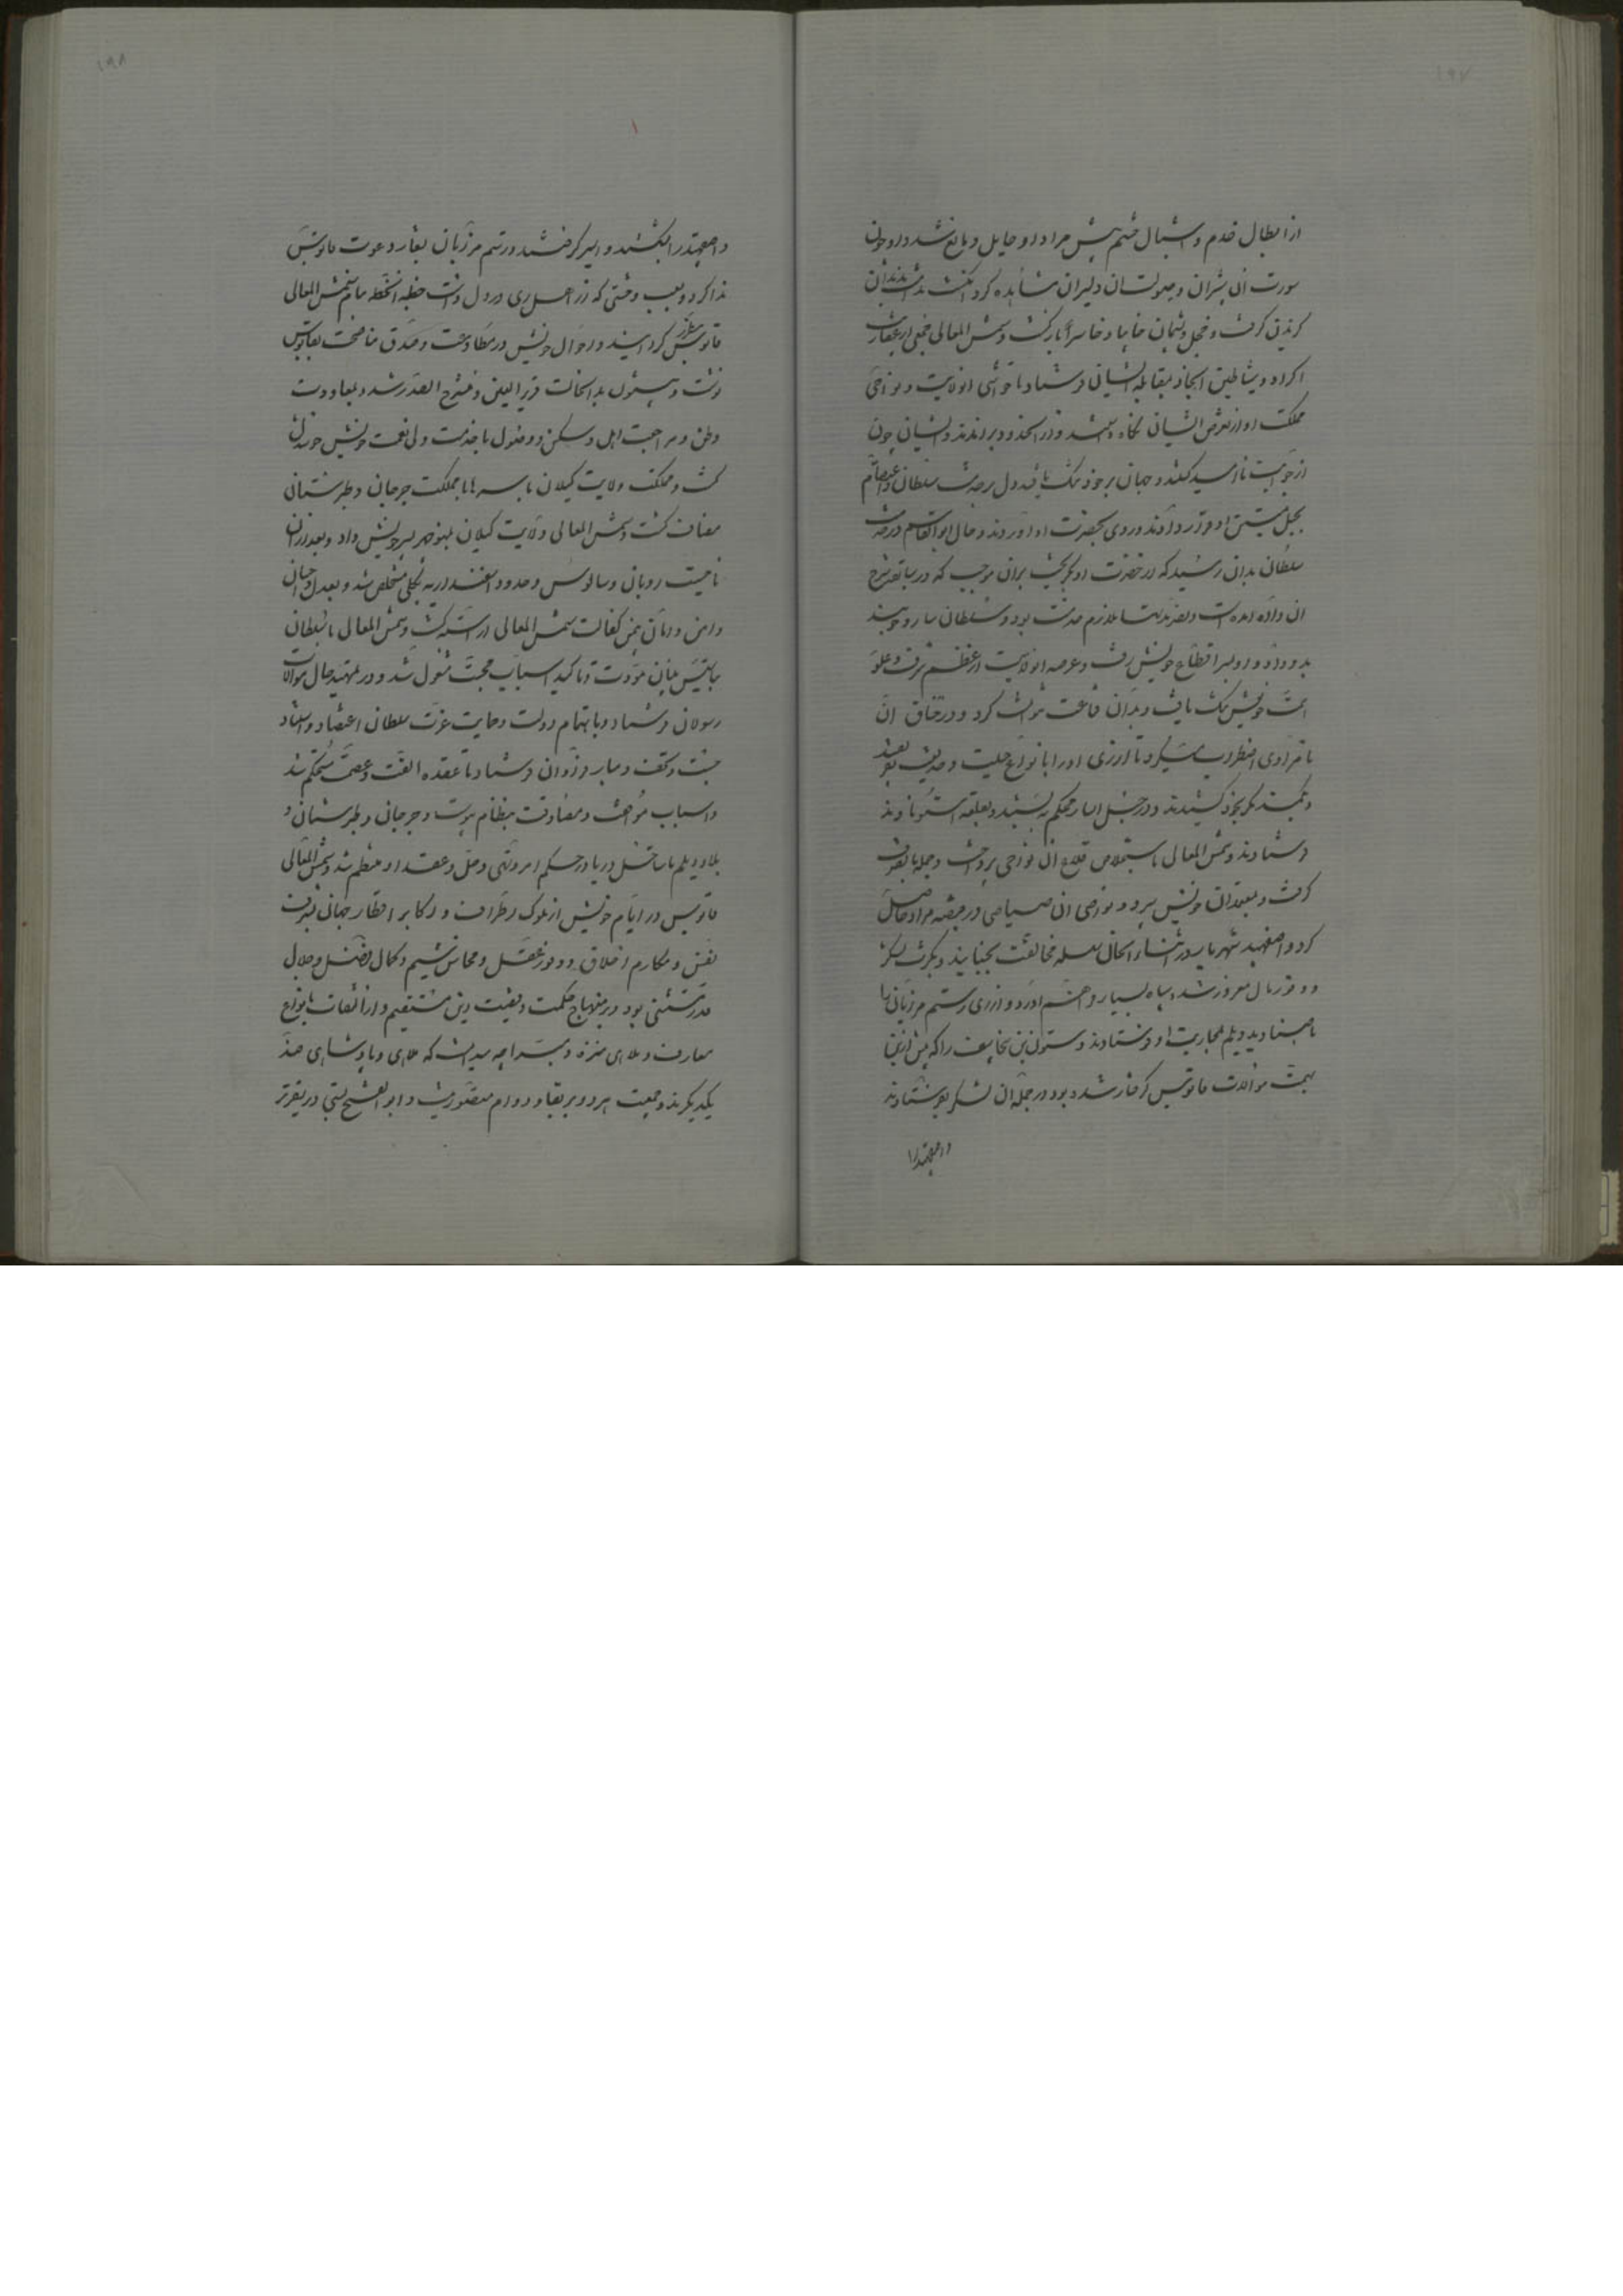 ۱۹۷
از ابطال خدم و اشبال حشم پیش مراد او حایل و مانع شد و او چون
سورت ان شیران و صولت ان دلیران مشاهده کرد انکشت ندامت بدندان
کزیدن کرفت و خجل و پشیمان خایبا و خاسرا باز کشت و شمس المعالی جمعی از
اکراد و شیاطین انجاد بمقابله ایشان فرستاد تا حواشی ان ولایت و نواحی
مملکت او از تعرض ایشان نکاه و ایشان چون
از جوانب نا امید کشتند و جهان بر خود تنک یافتند دل بر خدمت سلطان و اعتصام
بحبل متین او قرار دادند و روی بحضرت او اوردند و حال ابو القاسم در خدمت
سلطان بدان رسید که از حضرت او بکریخت بران موجب که در سابقه شرح
ان داده امده است و ملازم خدمت بود و سلطان
بدو داد و او بسر اقطاع خویش رفت و عرصه ان ولایت از عظم شرف و علو
همت خویش تنک یافت و بدان قناعت نتوانست کرد و در خناق ان
نامرادی اضطراب میکرد تا از ری او را بانواع حیلت و
بخود کشیدند و در محکم ببستند و بقلعه استوناوند
فرستادند و شمس المعالی باستخلاص قلاع ان نواحی پرداخت و جمله با تصرف
کرفت و بمعتمدان خویش سپرد و نواحی ان صیاصی در قبضه مراد حاصل
کرد و اصفهبد شهریار در اثناء ان حال سلسله مخالفت بجنبانید و بکثرت لشکر
و وفور مال مغرور شد و سپاه بسیار و حشم اورد و از ری رستم مرزبان را
با صنادید دیلم بمحاربت او فرستادند و بیستون بن بیجاسف را که پیش ازین
بتهمت موالات قابوس کرفتار شده بود در جمله ان لشکر بفرستادند
و اصفهبد را

۱۹۸
۱
و اصفهبد را بشکستند و اسیر کرفتند و رستم مرزبان بشعار دعوت قابوس
ندا کرد و بسبب وحشتی که از اهل ری در دل داشت خطبه ان خطه بنام شمس المعالی
قابوس مطرز کردانید و احوال خویش در مطاوعت و صدق مناصحت بقابوس
نوشت و بیستون بدان حالت قریر العین و منشرح الصدر شد و بمعاودت
وطن و مراجعت اهل و مسکن و وصول با خدمت ولی نعمت خویش خوشدل
کشت و مملکت ولایت کیلان با سرها با مملکت جرجان و طبرستان
مضاف کشت و شمس المعالی ولایت کیلان بمنوچهر پسر خویش داد و بعد از ان
ناحیت رویان و سالوس و حدود استنداریه بکلی مستخلص شد و بعدل و احسان
و امن و امان بیمن کفالت شمس المعالی اراسته کشت و شمس المعالی با سلطان
بتاسیس بنیان مودت و تاکید اسباب محبت مشغول شد و در تمهید حال موالات
رسولان فرستاد و باهتمام دولت و حمایت عزت سلطان اعتضاد و استناد
جست و تحف و مبار فراوان فرستاد تا عقده الفت و عصمت مستحکم شد
و اسباب موافقت و مصادقت بنظام پیوست و جرجان و طبرستان و
بلاد دیلم تا ساحل دریا در حکم امر و نهی و حل و عقد او منتظم شد و شمس المعالی
قابوس در ایام خویش از ملوک اطراف و اکابر اقطار جهان بشرف
نفس و مکارم اخلاق و وفور عقل و محاسن شیم و کمال فضل و جلال
قدر مستثنی بود و بر منهاج حکمت و قضیت دین مستقیم و از التفات بانواع
معازف و ملاهی منزه و مبرا چه میدانست که ملاهی و پادشاهی ضد
یکدیکرند و جمعیت هر دو بر بقا و دوام متصور نیست و ابو الفتح بستی در تقریر